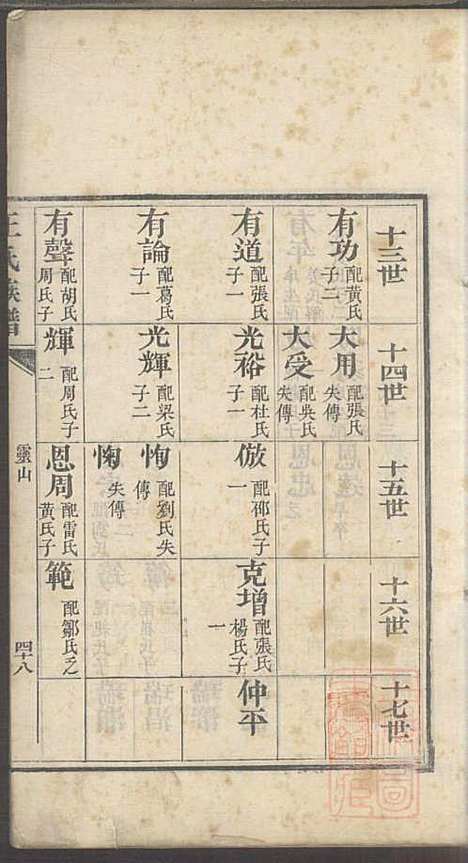 十三世
有功 配黃氏
子二
有道 配張氏
子一
有論 配葛氏
子一
有聲 配胡氏
周氏子
十四世
大用 配張氏
失傳
大受 配吳氏
失傳
光裕 配杜氏
子一
光輝 配梁氏
子二
輝 配周氏子
二
十五世
倣 配邳氏子
一
恂 配劉氏失
傳
恟 失傳
恩周 配雷氏
黃氏子
十六世
克增 配張氏
楊氏子
一
範 配鄒氏之
十七世
仲平
王氏族譜
靈山
四十八